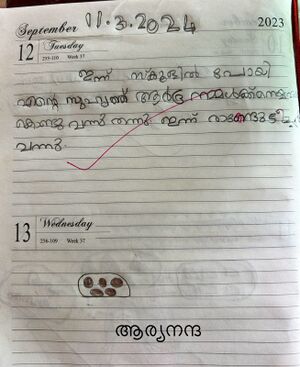 September 11.3.2024 2023
12 Tuesday
255-110 Week 37
ഇന്ന് സ്കൂളിൽ പോയി
എന്റെ സുഹൃത്ത് ആർദ്ര
കൊണ്ടു വന്നു തന്നു. ഇന്ന്
വന്നു.
13 Wednesday
256-109 Week 37
ആര്യനന്ദ